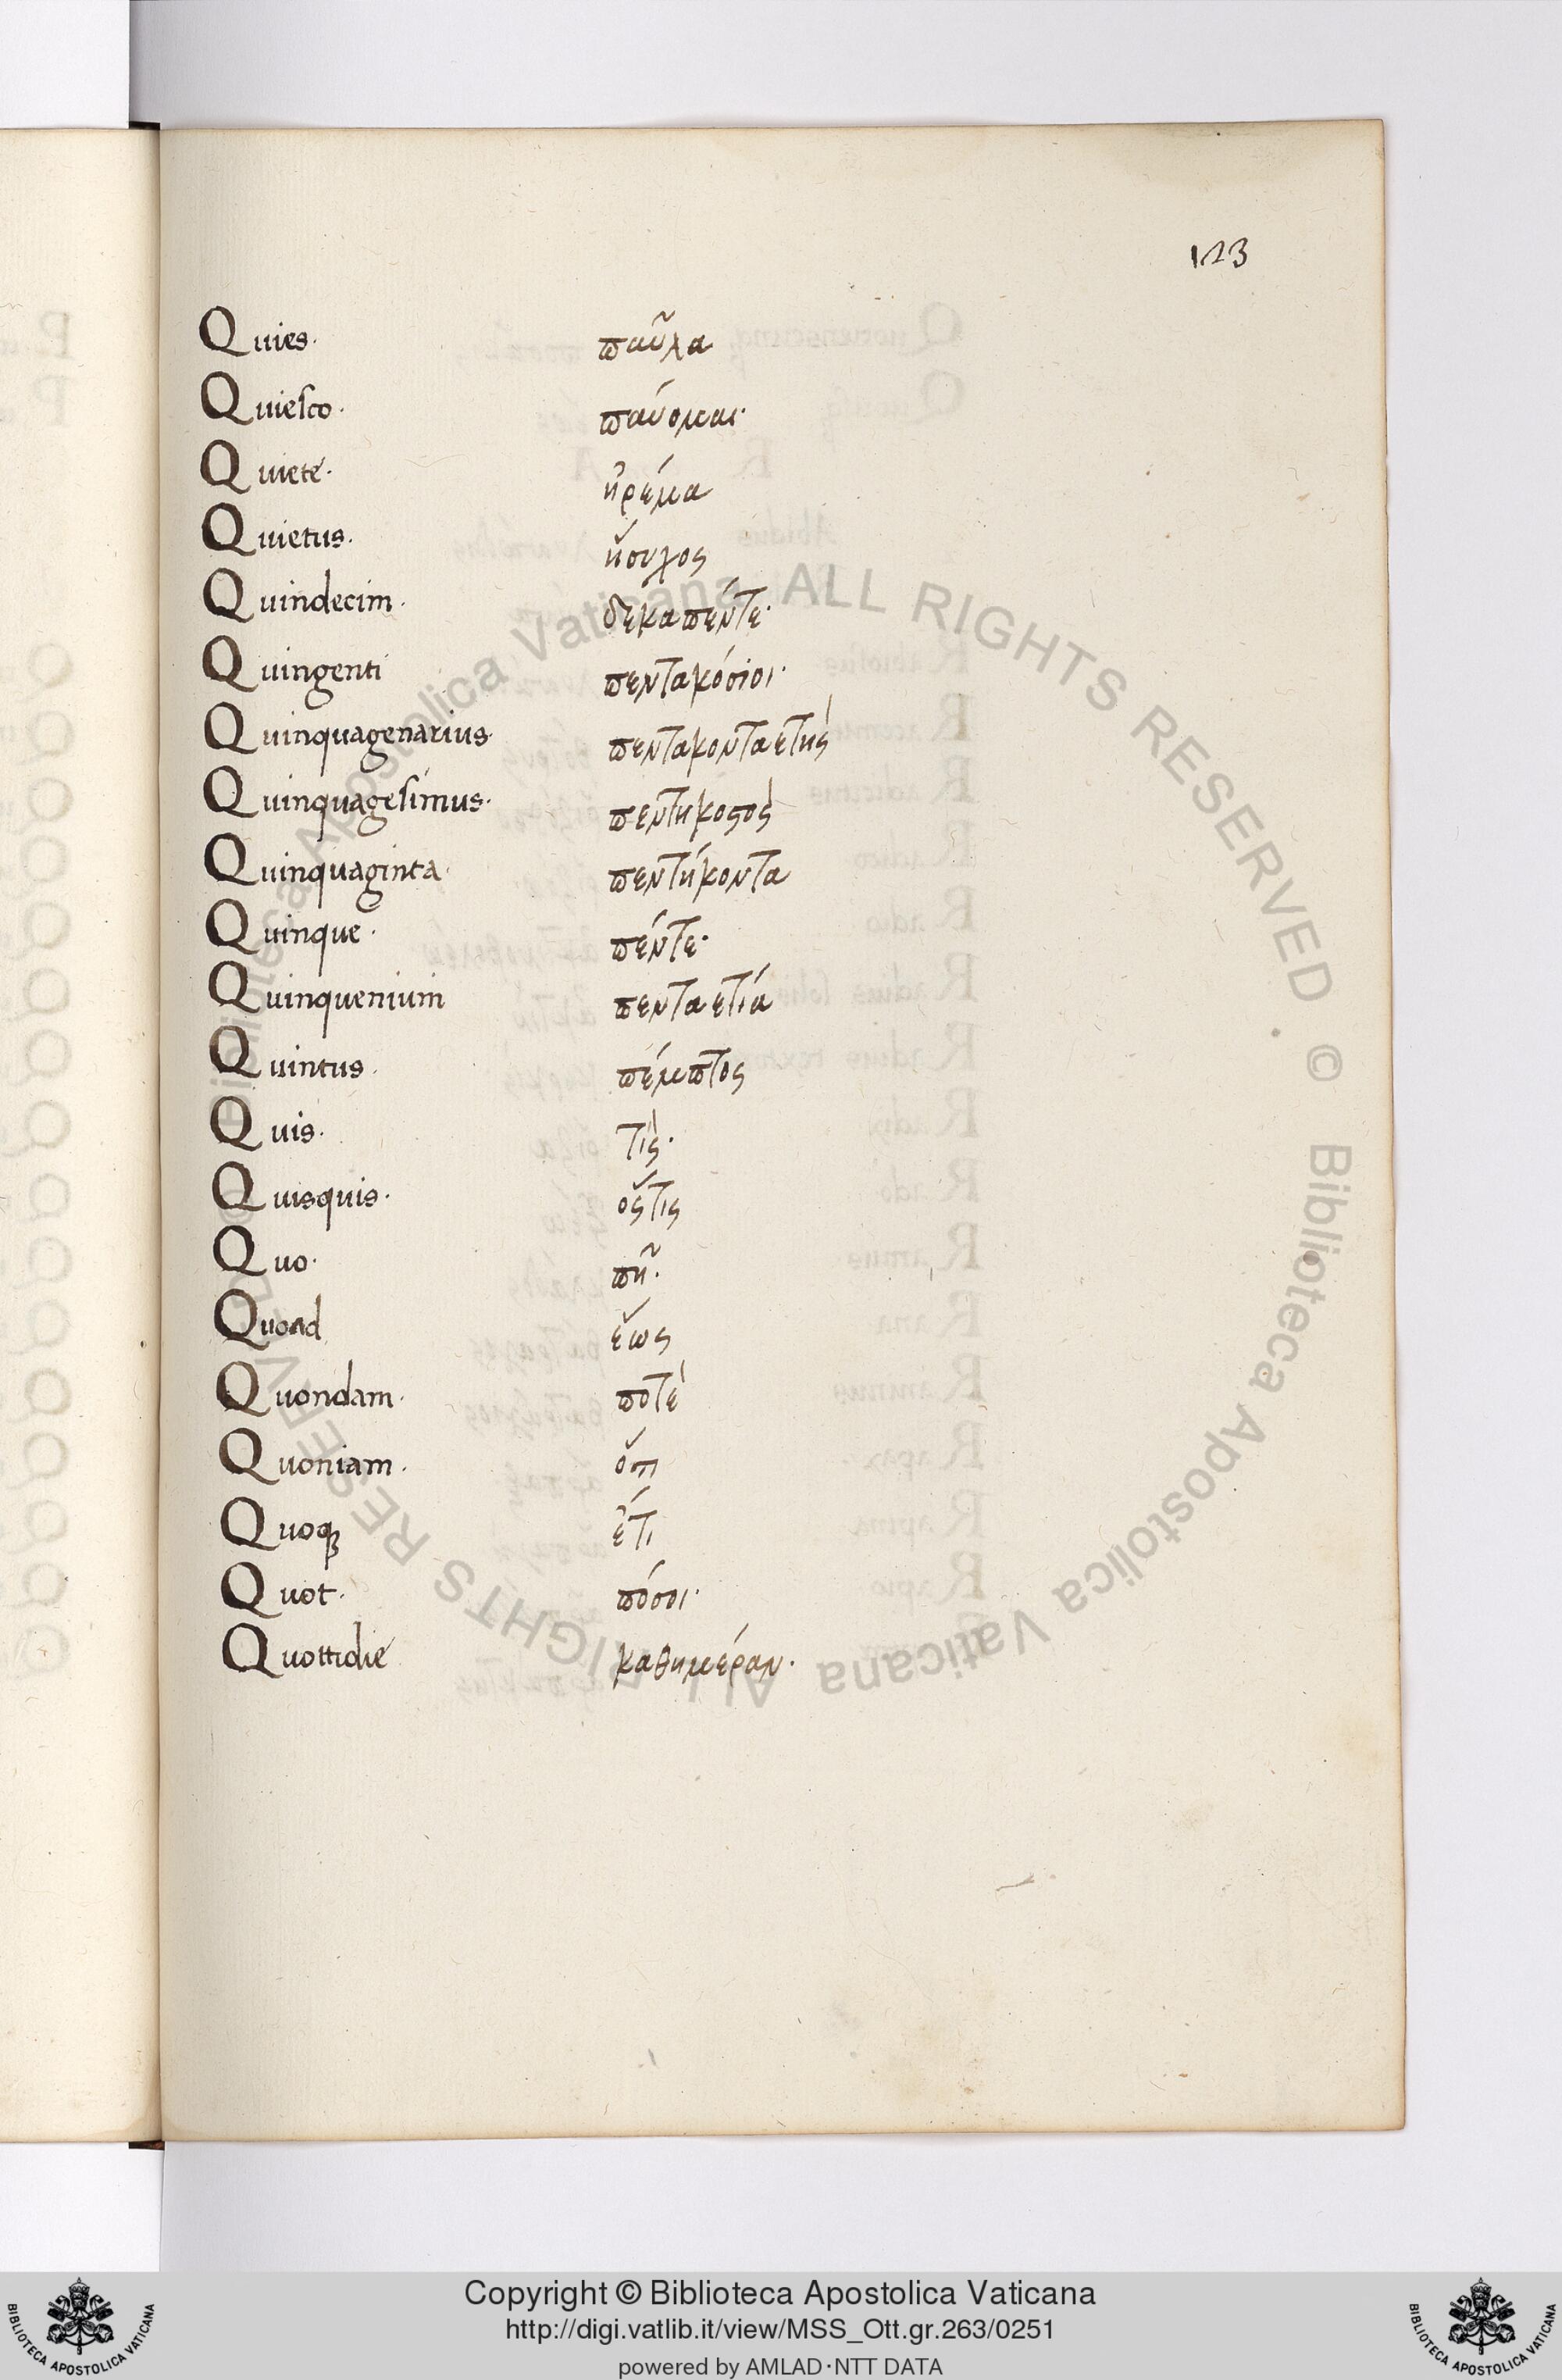 123
Quies. παῦλα
Quiesco. παύομαι.
Quiete. ἠρέμα
Quietus. ἥσυχος
Quindecim. δεκαπέντε.
Quingenti πεντακόσιοι.
Quinquagenarius. πεντακονταετὴς
Quinquagesimus. πεντηκοστὸς
Quinquaginta. πεντήκοντα
Quinque. πέντε.
Quinquenium πενταετία
Quintus. πέμπτος
Quis. τὶς.
Quisquis. ὅστις
Quo. πῆ.
Quoad ἕως
Quondam. ποτὲ
Quoniam. ὅτι
Quoqꝫ ἔτι
Quot. πόσοι.
Quottidie καθημέραν.
Biblioteca Apostolica Vaticana ALL RIGHTS RESERVED. © Biblioteca Apostolica Vaticana ALL RIGHTS RESERVED. ©
Copyright © Biblioteca Apostolica Vaticana
http://digi.vatlib.it/view/MSS_Ott.gr.263/0251
powered by AMLAD·NTT DATA
BIBLIOTECA APOSTOLICA VATICANA
BIBLIOTECA APOSTOLICA VATICANA